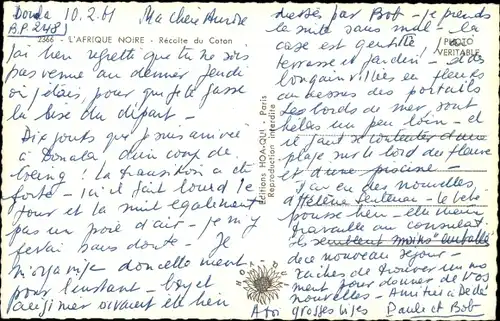 Douala 10.2.61 Ma chère Aurore
B.P. 2481
2366 - L'AFRIQUE NOIRE - Récolte du Coton
j'ai bien regretté que tu ne sois
pas venue au dernier jeudi
où j'étais, pour que je te fasse
la bise du départ -
Dix jours que je suis arrivée
à Douala d'un coup de
boeing ! la transition a été
forte - ici il fait lourd le
jour et la nuit également
pas un poil d'air - je m'y
ferai sans doute - Je
m'organise doucellement
pour l'instant - boy et
cuisinier arrivent et bien
Editions HOA-QUI - Paris
Reproduction interdite
HOA-QUI
dressés par Bob - je prends
la suite sans mal - la
case est gentille !
terrasse et jardin - et des
bougainvillées en fleurs
au dessus des portails
Les bords de mer, sont
hélas un peu loin - et
il faut se contenter d'une
plage sur le bord du fleuve
et d'une piscine -
J'ai eu des nouvelles
d'Hélène - le bébé
pousse bien - elle vient
travailler au consulat.
Ils semblent moins emballés
de ce nouveau séjour -
Tâches de trouver un mo
ment pour donner de vos
nouvelles - Amitiés à Dédé
A toi grosses bises Paule et Bob
PHOTO
VERITABLE